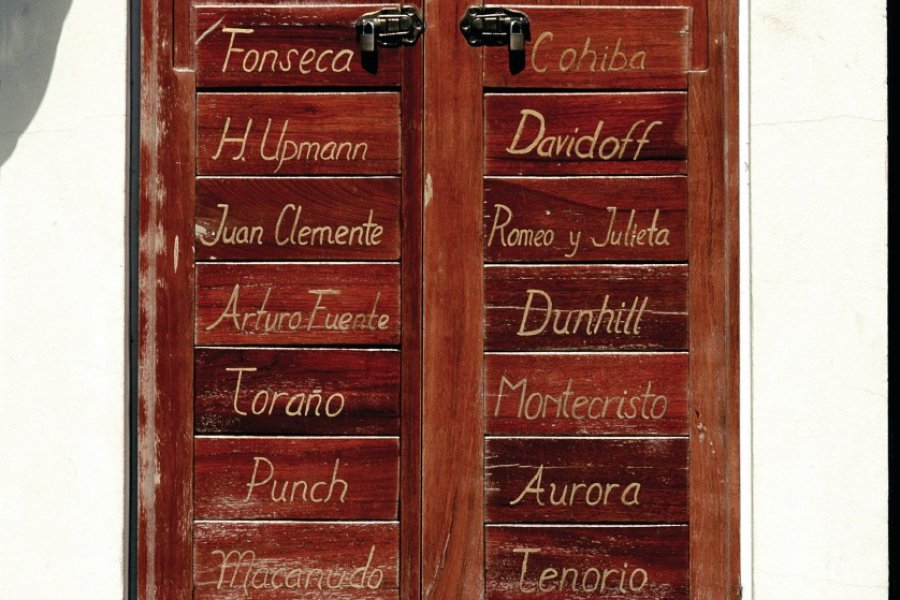 Fonseca
H. Upmann
Juan Clemente
Arturo Fuente
Toraño
Punch
Macanudo
Cohiba
Davidoff
Romeo y Julieta
Dunhill
Montecristo
Aurora
Tenorio